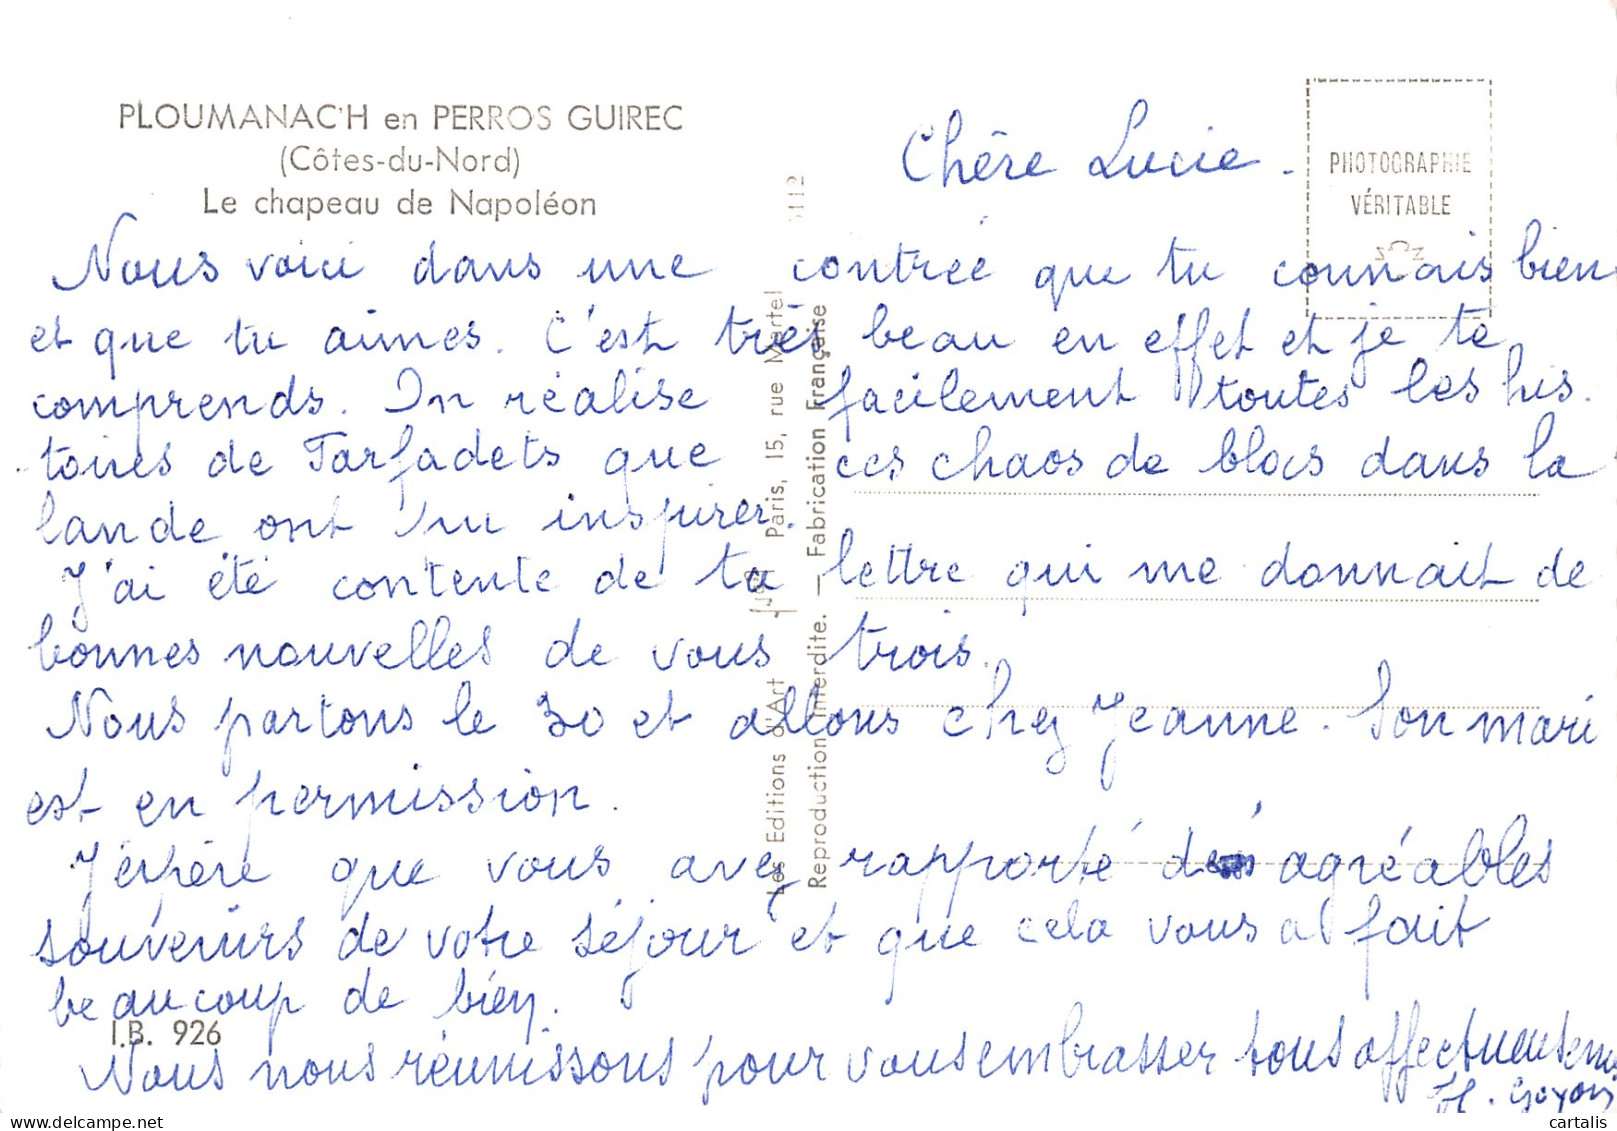 PLOUMANAC'H en PERROS GUIREC
(Côtes-du-Nord)
Le chapeau de Napoléon
PHOTOGRAPHIE
VÉRITABLE
Chère Lucie.
Nous voici dans une contrée que tu connais bien
et que tu aimes. C'est très beau en effet et je te
comprends. On réalise facilement toutes les his-
toires de Farfadets que ces chaos de blocs dans la
lande ont pu inspirer.
J'ai été contente de ta lettre qui me donnait de
bonnes nouvelles de vous trois.
Nous partons le 30 et allons chez Jeanne. Son mari
est en permission.
J'espère que vous avez rapporté des agréables
souvenirs de votre séjour et que cela vous a fait
beaucoup de bien.
Nous nous réunissons pour vous embrasser tous affectueusement
I.B. 926
Les Editions d'Art Jack Paris, 15, rue Martel
Reproduction interdite. — Fabrication Française
cartalis
delcampe.net